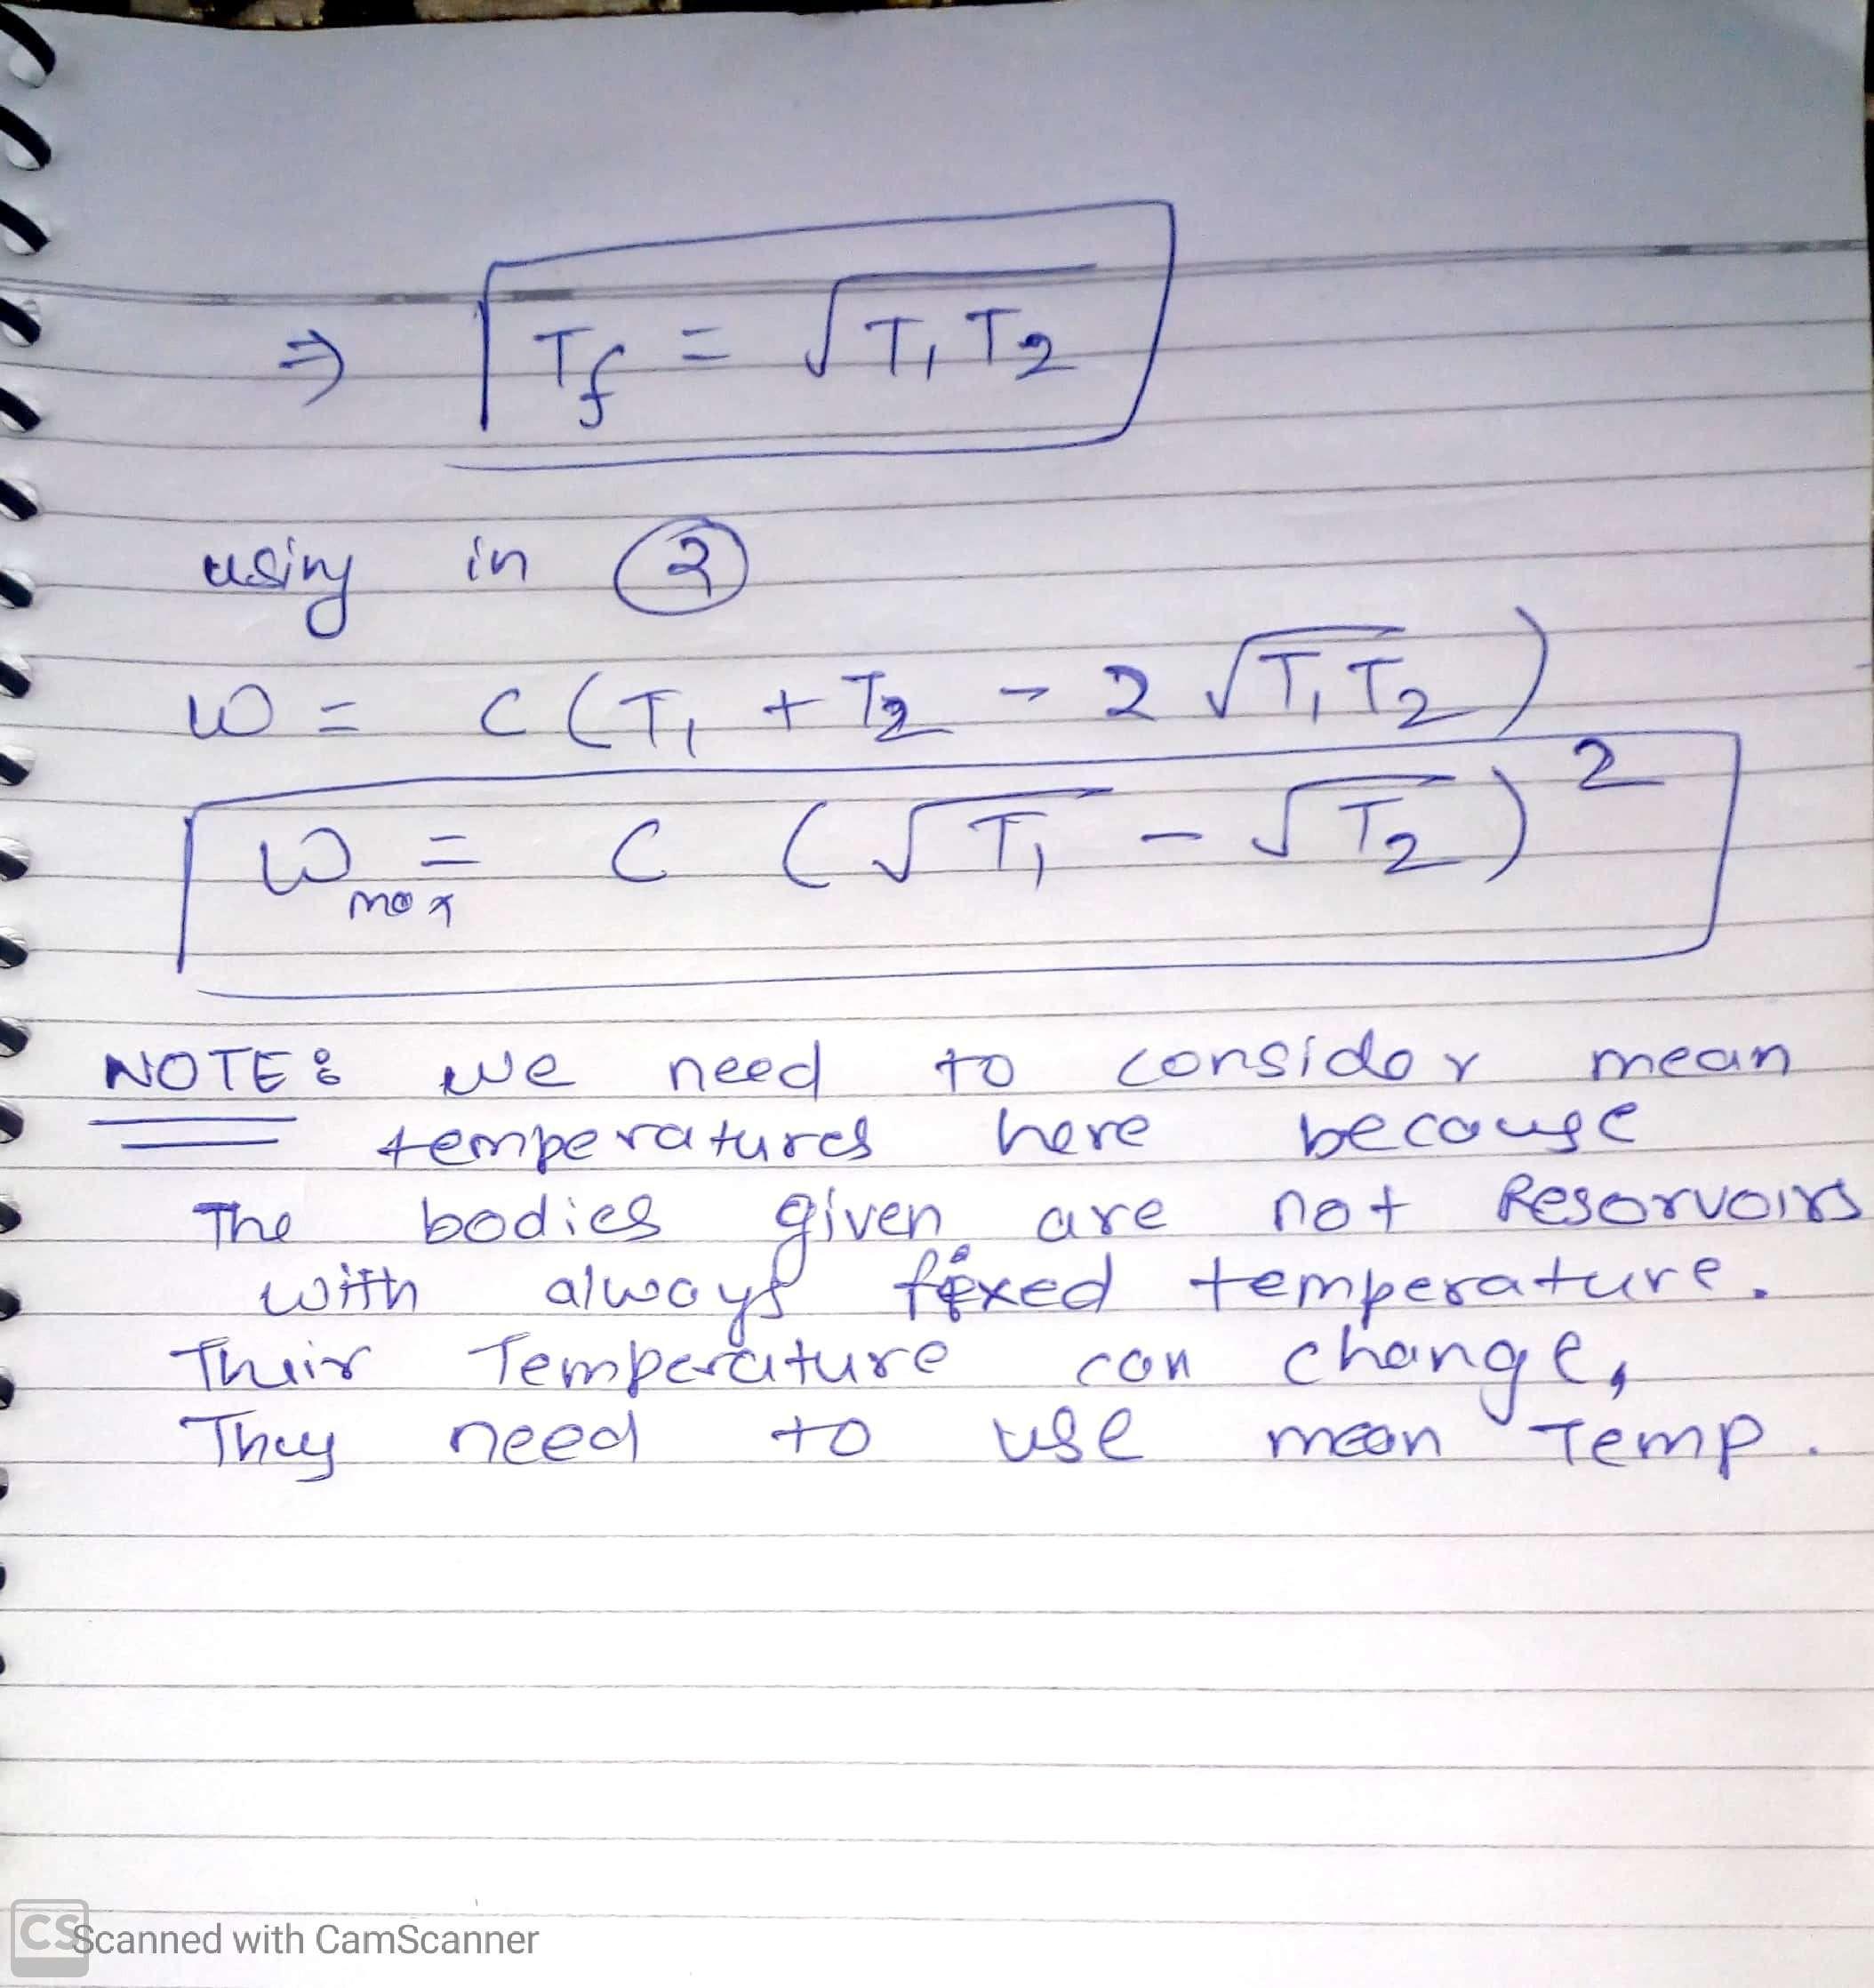 ⇒ T_f = √T₁T₂
using in ②
W = C (T₁ + T₂ - 2 √T₁T₂)
W_max = C (√T₁ - √T₂)²
NOTE: we need to consider mean
temperatures here because
The bodies given are not Reservoirs
with always fixed temperature.
Their Temperature can change,
They need to use mean Temp.
CS Scanned with CamScanner